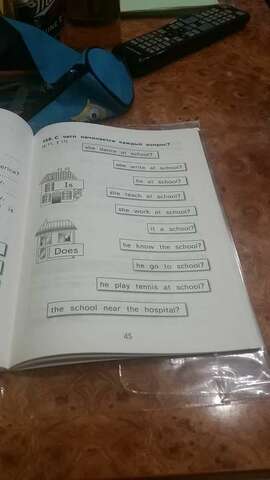 С чего начинается каждый вопрос?
she dance at school?
she write at school?
he at school?
Is
she teach at school?
she work at school?
it a school?
he know the school?
Does
he go to school?
he play tennis at school?
the school near the hospital?
45